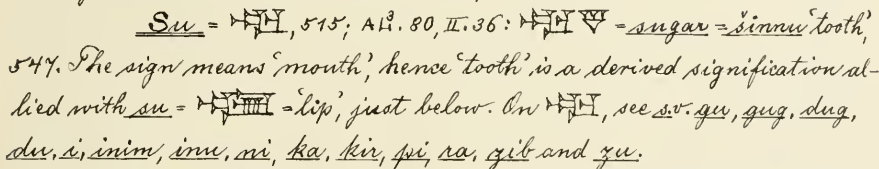 Su = 𒅗, 515; AL³. 80, II. 36: 𒅗 𒃻 = sugar = šinnu 'tooth',
547. The sign means 'mouth', hence 'tooth' is a derived signification al-
lied with su = 𒉿 = 'lip', just below. On 𒅗, see s.v. gu, gug, dug,
du, i, inim, inu, ni, ka, kir, pi, ra, zib and zu.